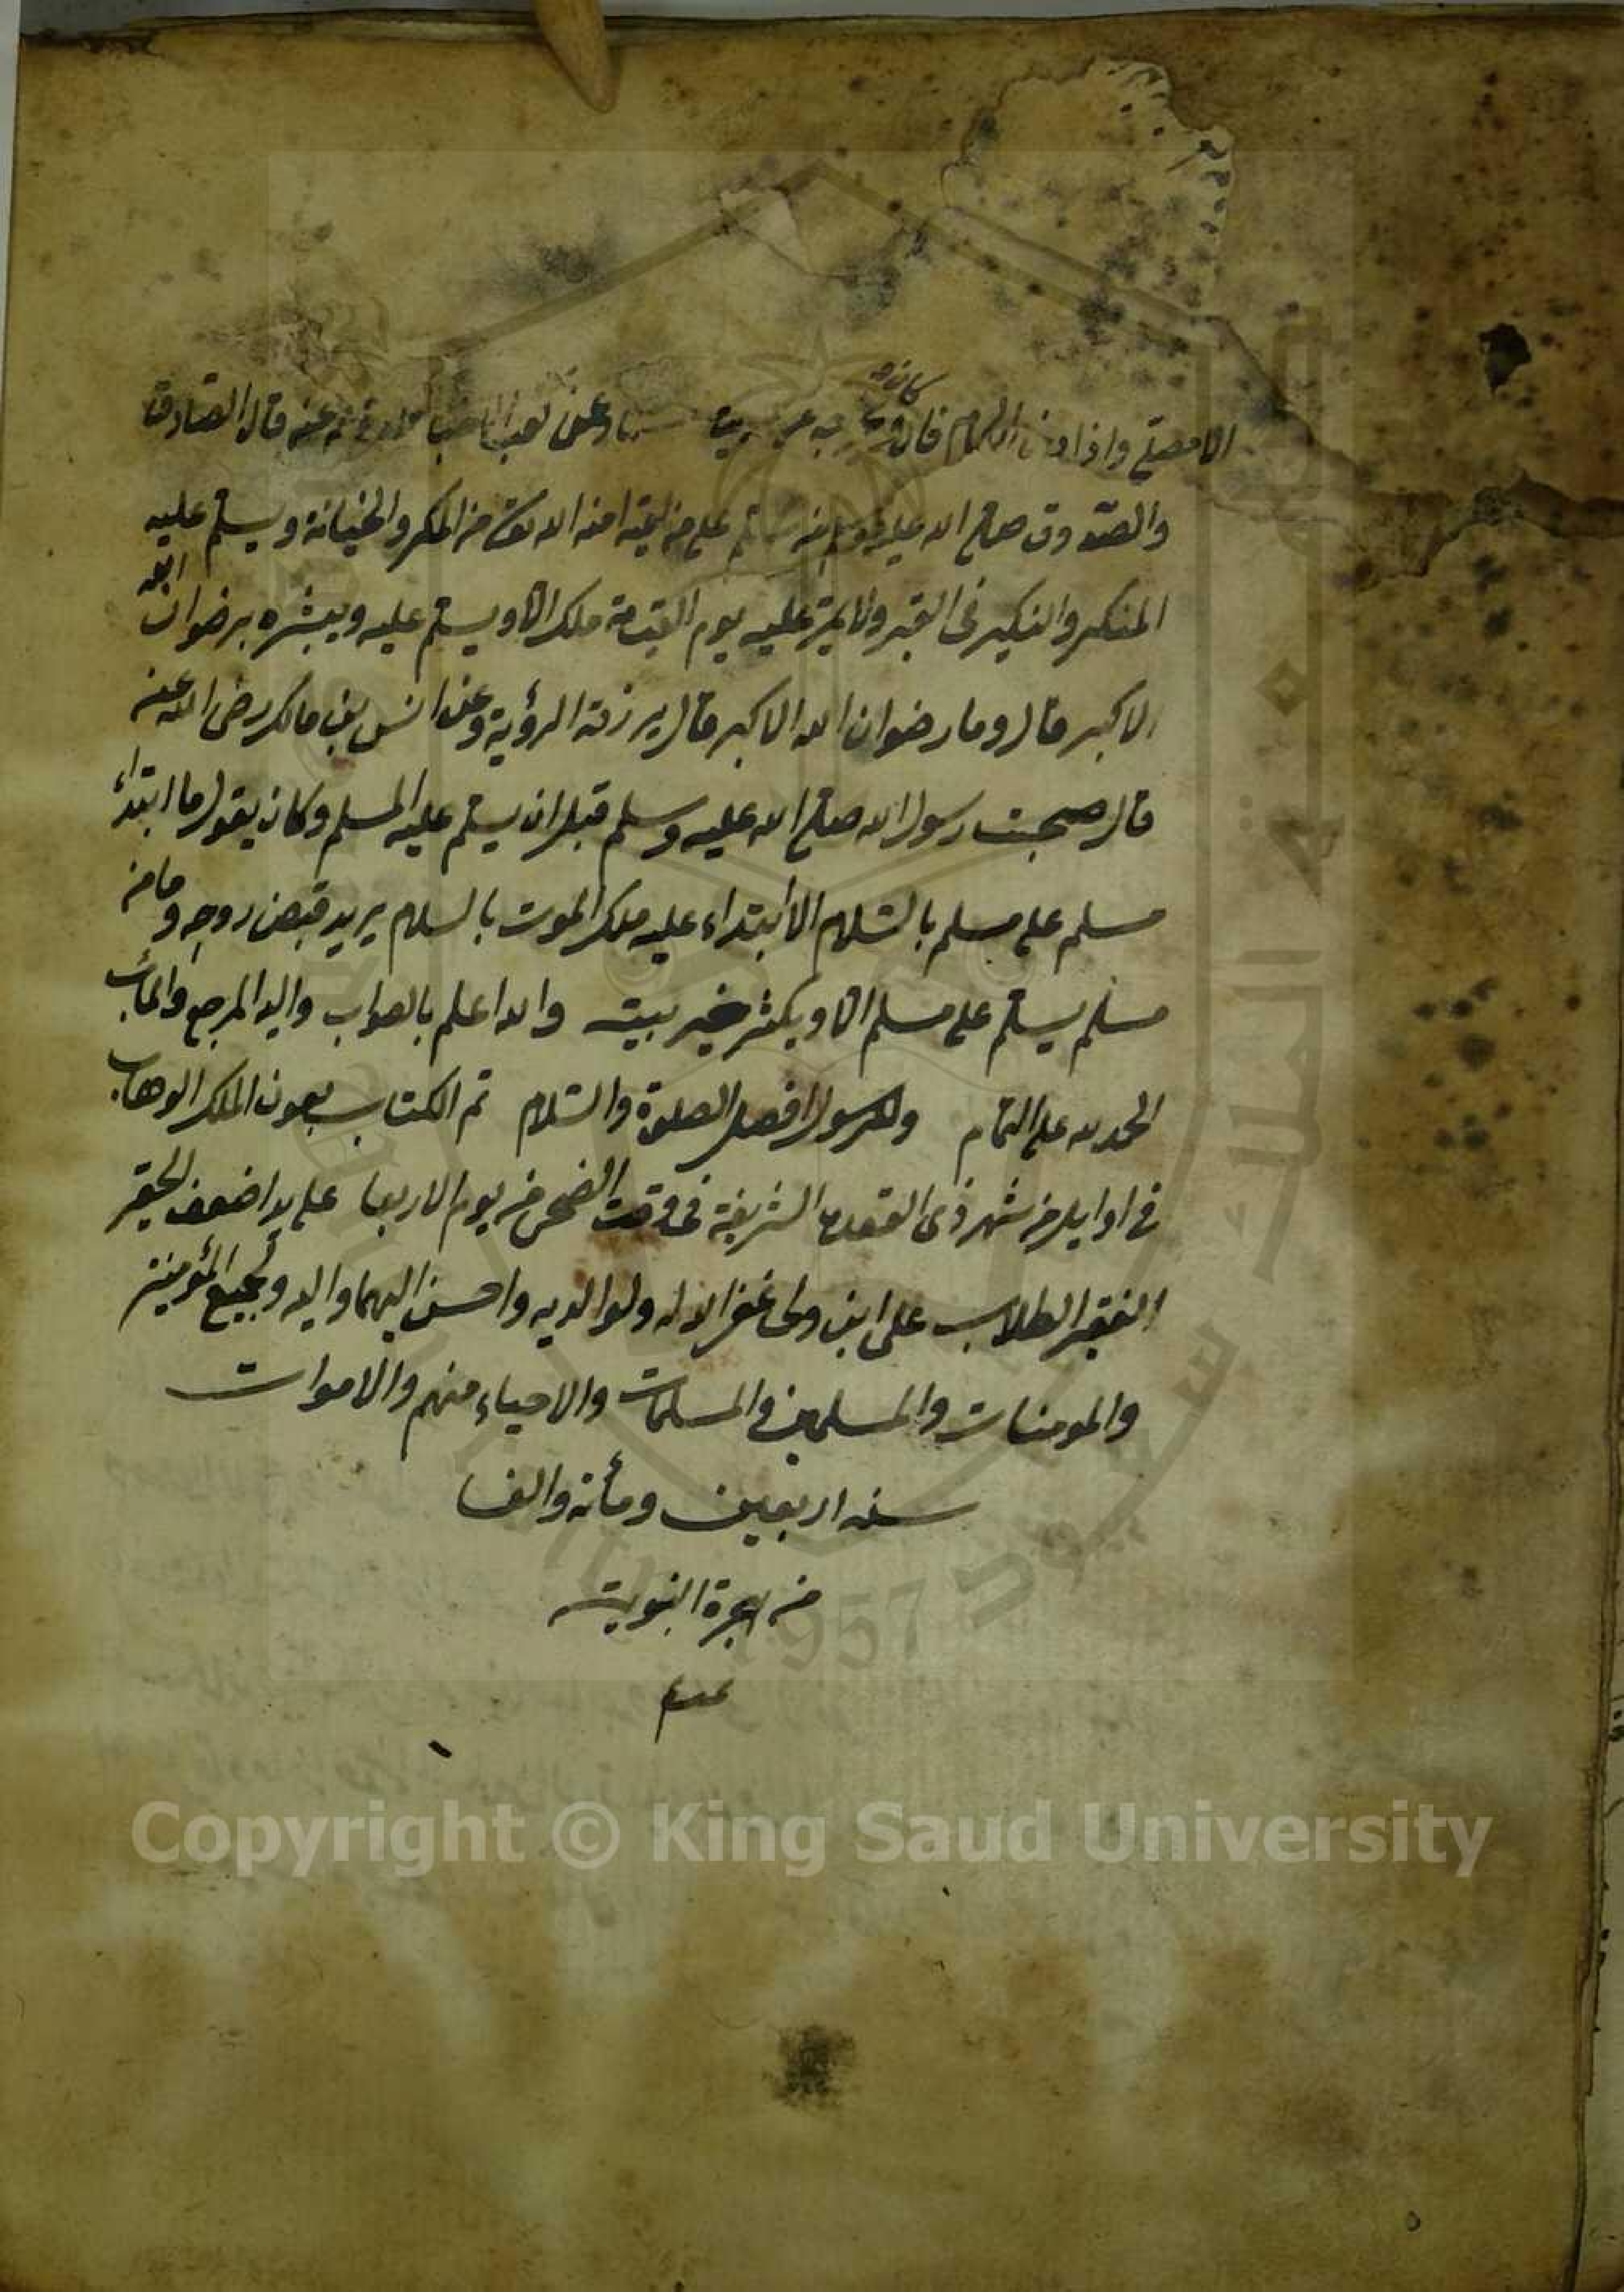 وعن كعب رضى الله عنه قال الصادق
والصدوق صلى الله عليه وسلم من سلم على من لقيه امنه الله تعالى من المكر والخيانة ويسلم عليه
المنكير والنكير فى القبر ولا يمر عليه يوم القيمة ملك الا ويسلم عليه ويبشره برضوان الله
الاكبر قال وما رضوان الله الاكبر قال يرزقه الرؤية وعن انس بن مالك رضى الله عنه
قال صحبت رسول الله صلى الله عليه وسلم قبل ان يسلم عليه المسلم وكان يقول ما ابتداء
مسلم على مسلم بالسلام الا ابتداء عليه ملك الموت بالسلام يريد قبض روحه وما من
مسلم يسلم على مسلم الا ويكثر خير بيته والله اعلم بالصواب واليه المرجع والمأب
الحمد لله على التمام ولرسوله افضل الصلوة والسلام تم الكتاب بعون الملك الوهاب
فى اوايل من شهر ذى القعده الشريفة فى وقت الضحى من يوم الاربعا على يد اضعف الحقير
الفقير الطلاب على ابن ولى غفر الله له ولوالديه واحسن اليهما واليه ولجميع المؤمنين
والمومنات والمسلمين والمسلمات والاحياء منهم والاموات
سنه اربعين ومأته والف
من هجرة النبوية
Copyright © King Saud University
1957